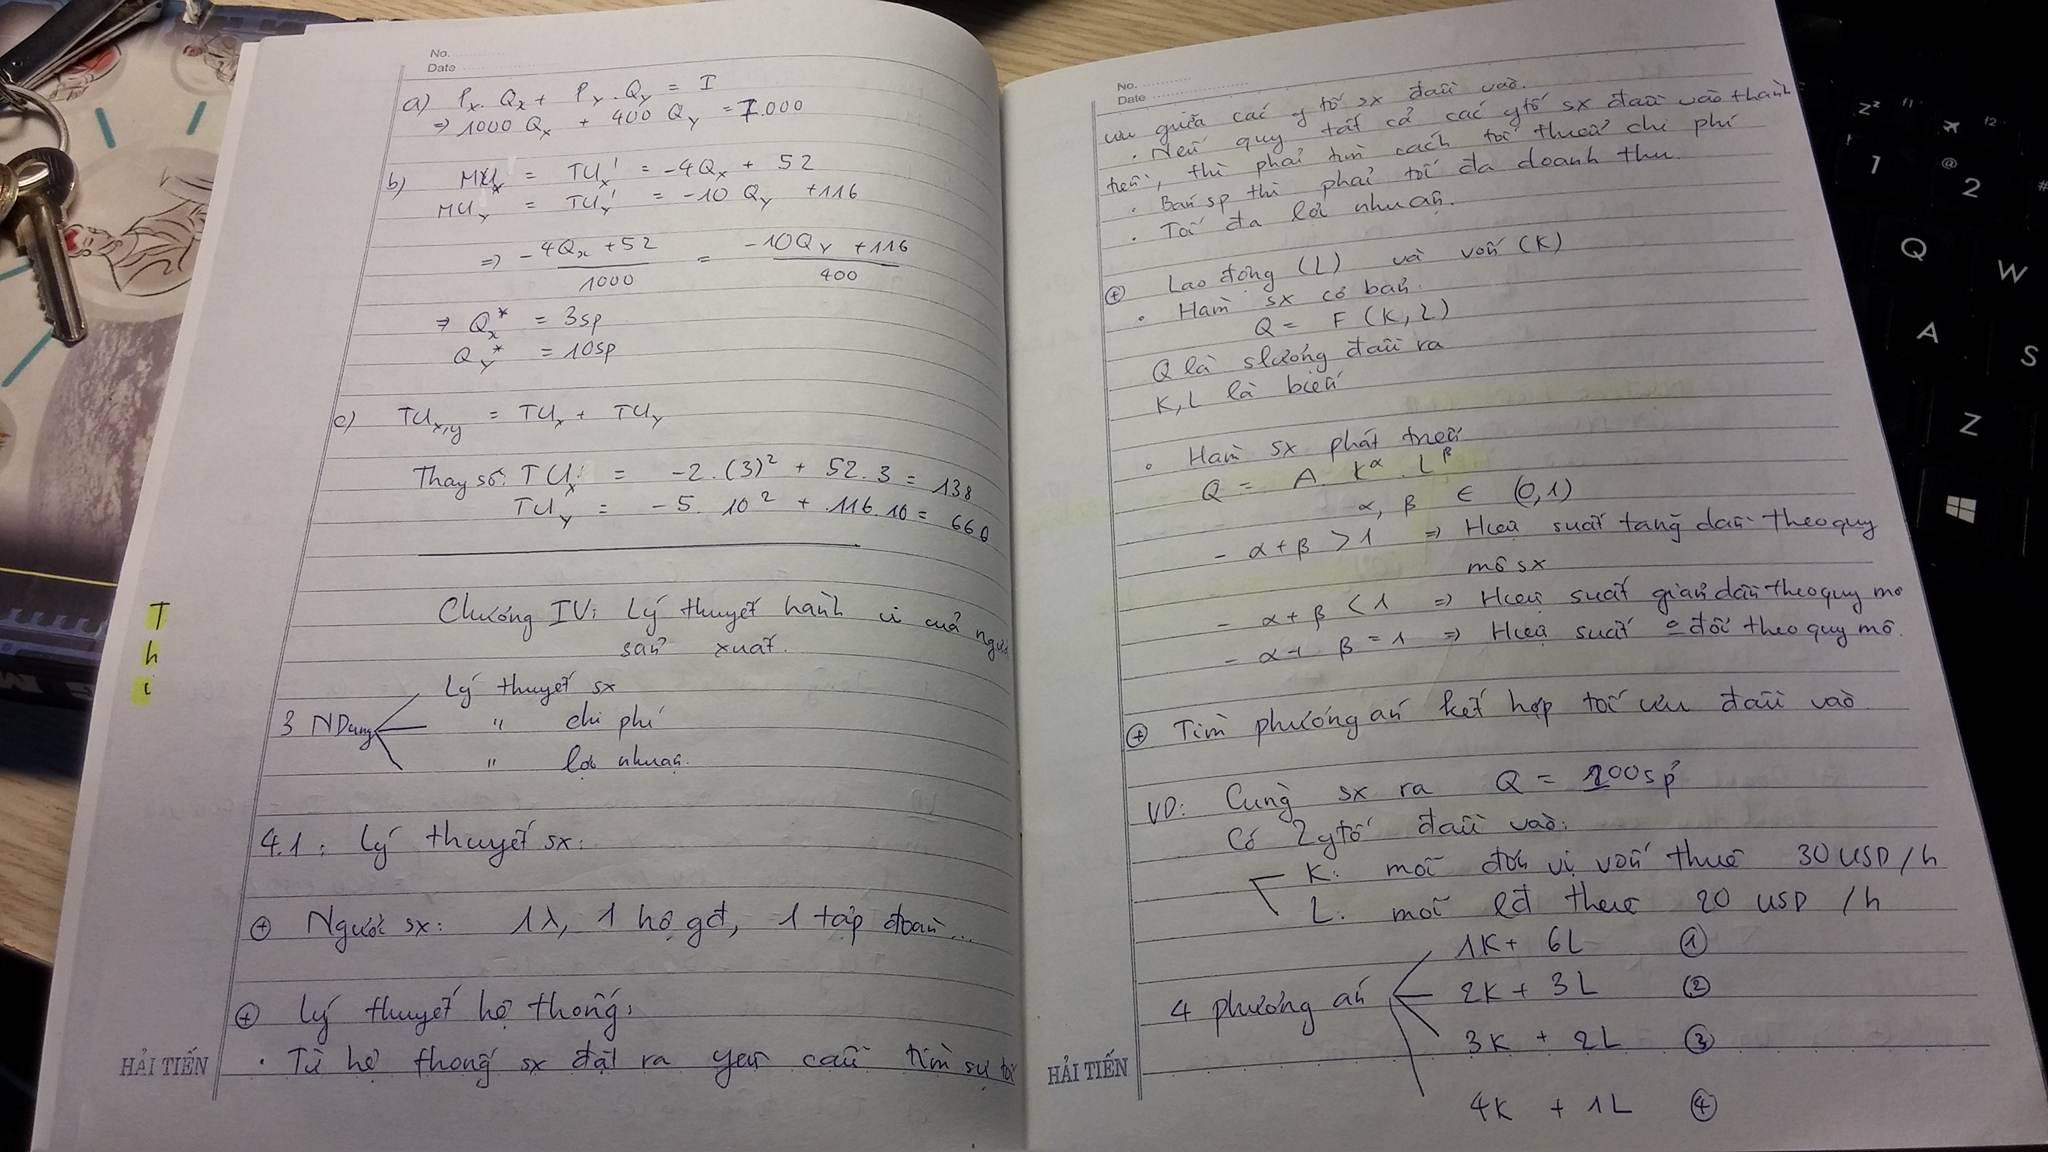 No.
Date
a) Px. Qx + Py. Qy = I
⇒ 1000 Qx + 400 Qy = 7.000
b) MUx = TUx' = -4Qx + 52
MUy = TUy' = -10 Qy + 116
⇒ -4Qx + 52 / 1000 = -10Qy + 116 / 400
⇒ Qx* = 3sp
Qy* = 10sp
c) TUx,y = TUx + TUy
Thay số: TUx = -2. (3)² + 52. 3 = 138
TUy = -5. 10² + 116. 10 = 660
Chương IV: Lý thuyết hành vi của người
sản xuất.
Lý thuyết sx
3 NDung " chi phí
" lợi nhuận.
4.1: Lý thuyết sx:
⊕ Người sx: 1 hộ gđ, 1 tập đoàn...
⊕ Lý thuyết hệ thống:
• Từ hệ thống sx đặt ra yêu cầu tìm sự tối
HẢI TIẾN
T
h
i
No.
Date
ưu giữa các ytố sx đầu vào.
• Nếu quy tất cả các ytố sx đầu vào thành
tiền, thì phải tìm cách tối thiểu chi phí
• Bán sp thì phải tối đa doanh thu.
• Tối đa lợi nhuận.
⊕ Lao động (L) và vốn (K)
• Hàm sx cơ bản.
Q = F (K, L)
Q là slượng đầu ra
K, L là biến
• Hàm sx phát triển
Q = A. K^α . L^β
α, β ∈ (0,1)
- α + β > 1 ⇒ Hiệu suất tăng dần theo quy
mô sx
- α + β < 1 ⇒ Hiệu suất giảm dần theo quy mô
- α + β = 1 ⇒ Hiệu suất đổi theo quy mô.
⊕ Tìm phương án kết hợp tối ưu đầu vào
VD: Cùng sx ra Q = 100sp
Có 2 ytố đầu vào:
K: mỗi đơn vị vốn thuê 30 USD/h
L: mỗi lđ thuê 20 USD/h
1K + 6L ①
4 phương án 2K + 3L ②
3K + 2L ③
4K + 1L ④
HẢI TIẾN
Z
1
@
2
#
Q
W
A
S
Z